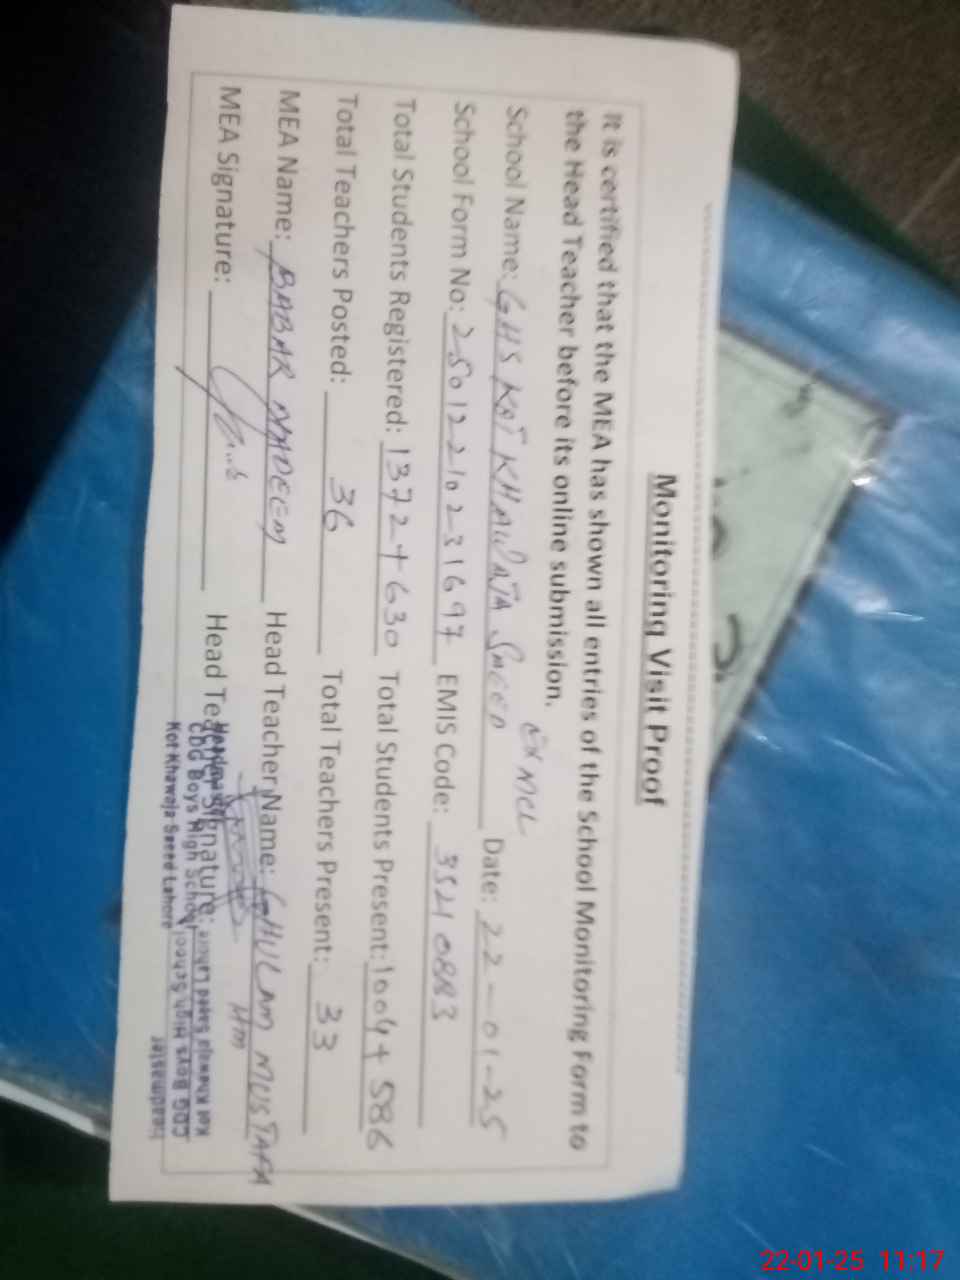 Monitoring Visit Proof
It is certified that the MEA has shown all entries of the School Monitoring Form to
the Head Teacher before its online submission.
EX MCL
School Name: GHS KOT KHAWAJA SAEED Date: 22-01-25
School Form No: 25012210231697 EMIS Code: 35210883
Total Students Registered: 1372+630 Total Students Present: 1004+586
Total Teachers Posted: 36 Total Teachers Present: 33
MEA Name: BABAR NADEEM Head Teacher Name: GHULAM MUSTAFA
MEA Signature: Head Teacher Signature: HM
Headmaster
CDG Boys High School
Kot Khawaja Saeed Lahore
Headmaster
CDG Boys High School
Kot Khawaja Saeed Lahore
22-01-25 11:17